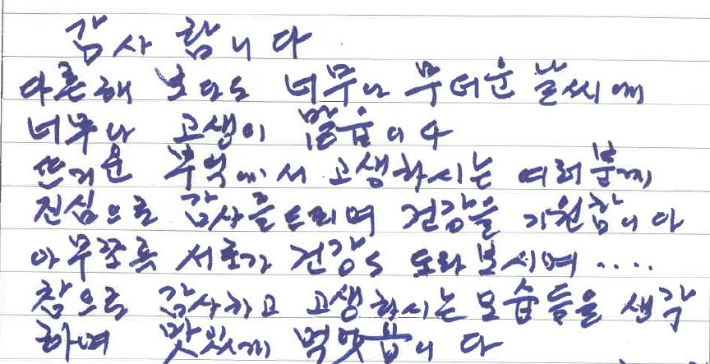 감사합니다
다른해 보다도 너무나 무더운 날씨에
너무나 고생이 많읍니다
뜨거운 부엌에서 고생하시는 여러분께
진심으로 감사를드리며 건강을 기원합니다
아무쪼록 서로가 건강도 도와보시며 ....
참으로 감사하고 고생하시는모습들을 생각
하며 맛있게 먹엇읍니다